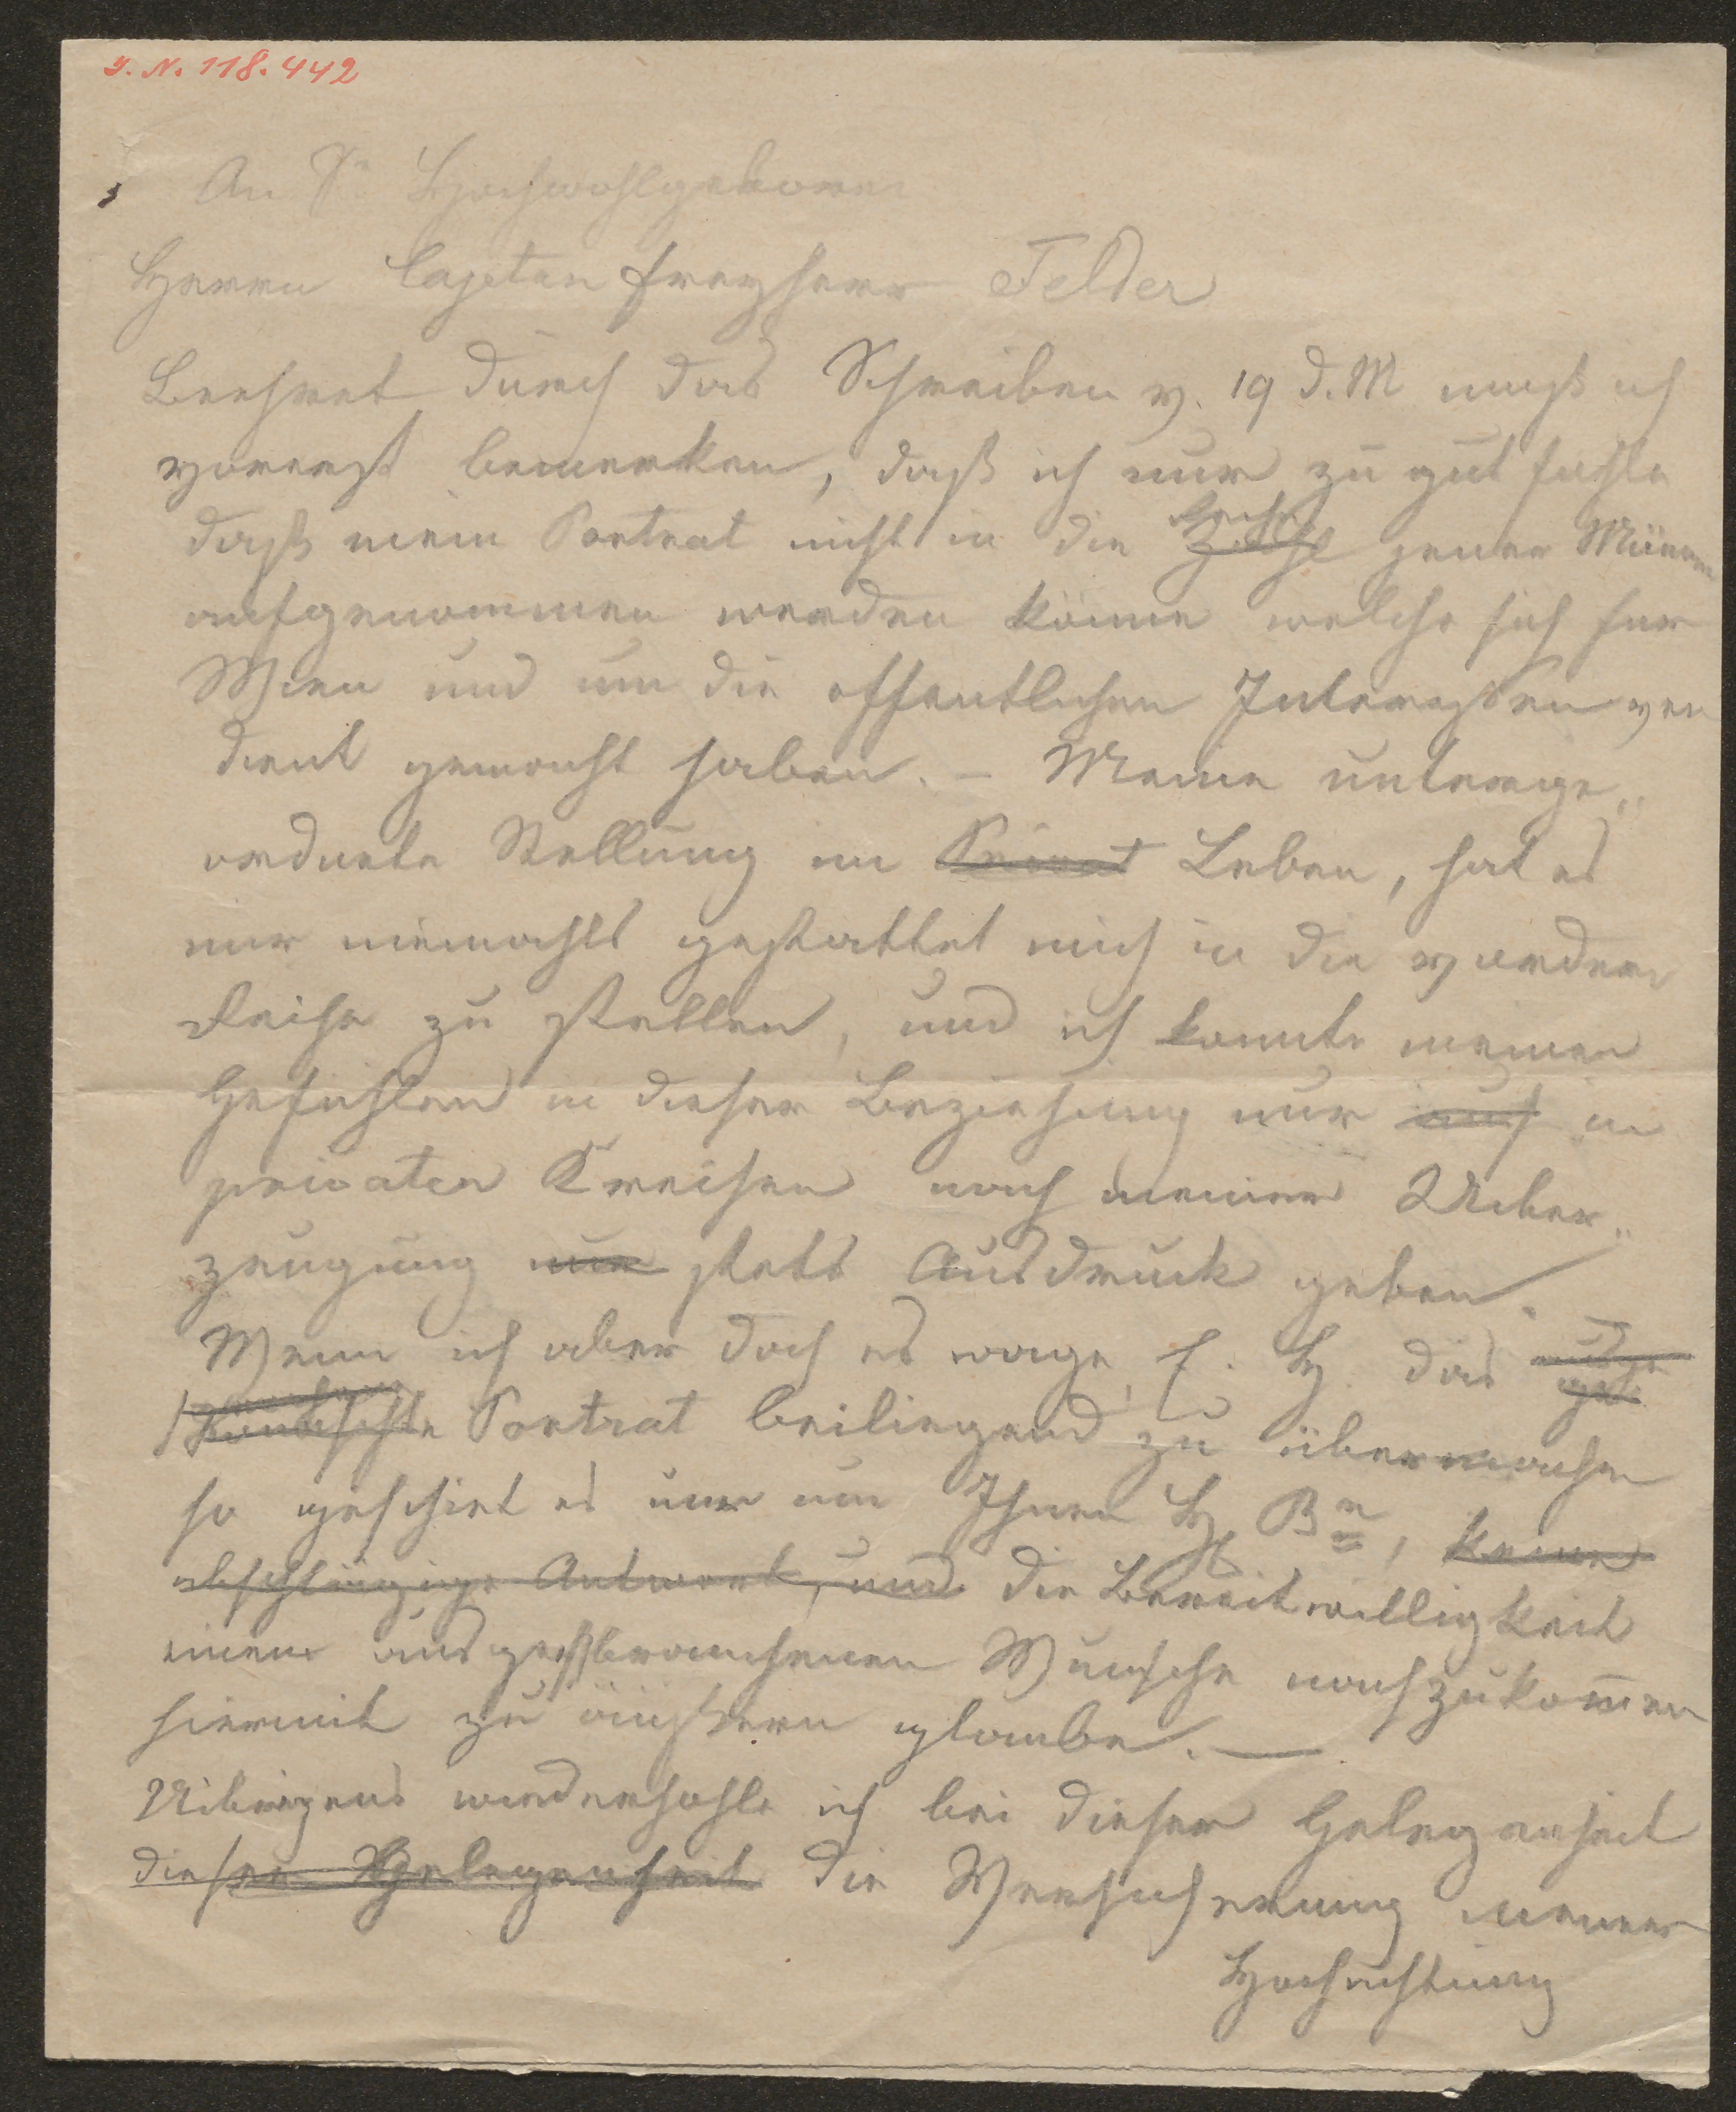 J. N. 118.442
An Sr Hochwohlgeboren
Herrn Cajetan Freyherr Felder
Beehret durch das Schreiben v. 19 d. M muß ich
vorerst bemerken, daß ich nur zu gut fühle
daß mein Portrat nicht in die Reihe Zahl jener Männer
aufgenommen werden könne welche sich fur
Wien und um die offentlichen Interessen ver
dient gemacht haben. – Meine unterge„
ordnete Stellung im Privat Leben, hat es
mir niemahls gestattet mich in die vordere
Reihe zu stellen, und ich konnte meinen
Gefühlen in dieser Beziehung nur auch in
privaten Kreisen nach meiner Uiber„
zeugung nur stets Ausdruck geben.
Wenn ich aber doch es wage, E. H. das
Portrat beiliegend zu übermachen
so geschiet es nur um Ihnen H. Bn, keine
abschlägige Antwort, und die Bereitwilligkeit
einem ausgesprochenen Wunsche nachzukommen
hiermit zu äußern glaube. —
Uibrigens wiederhohle ich bei dieser Gelegenheit
dieser Gelegenheit die Versicherung meiner
Hochachtung